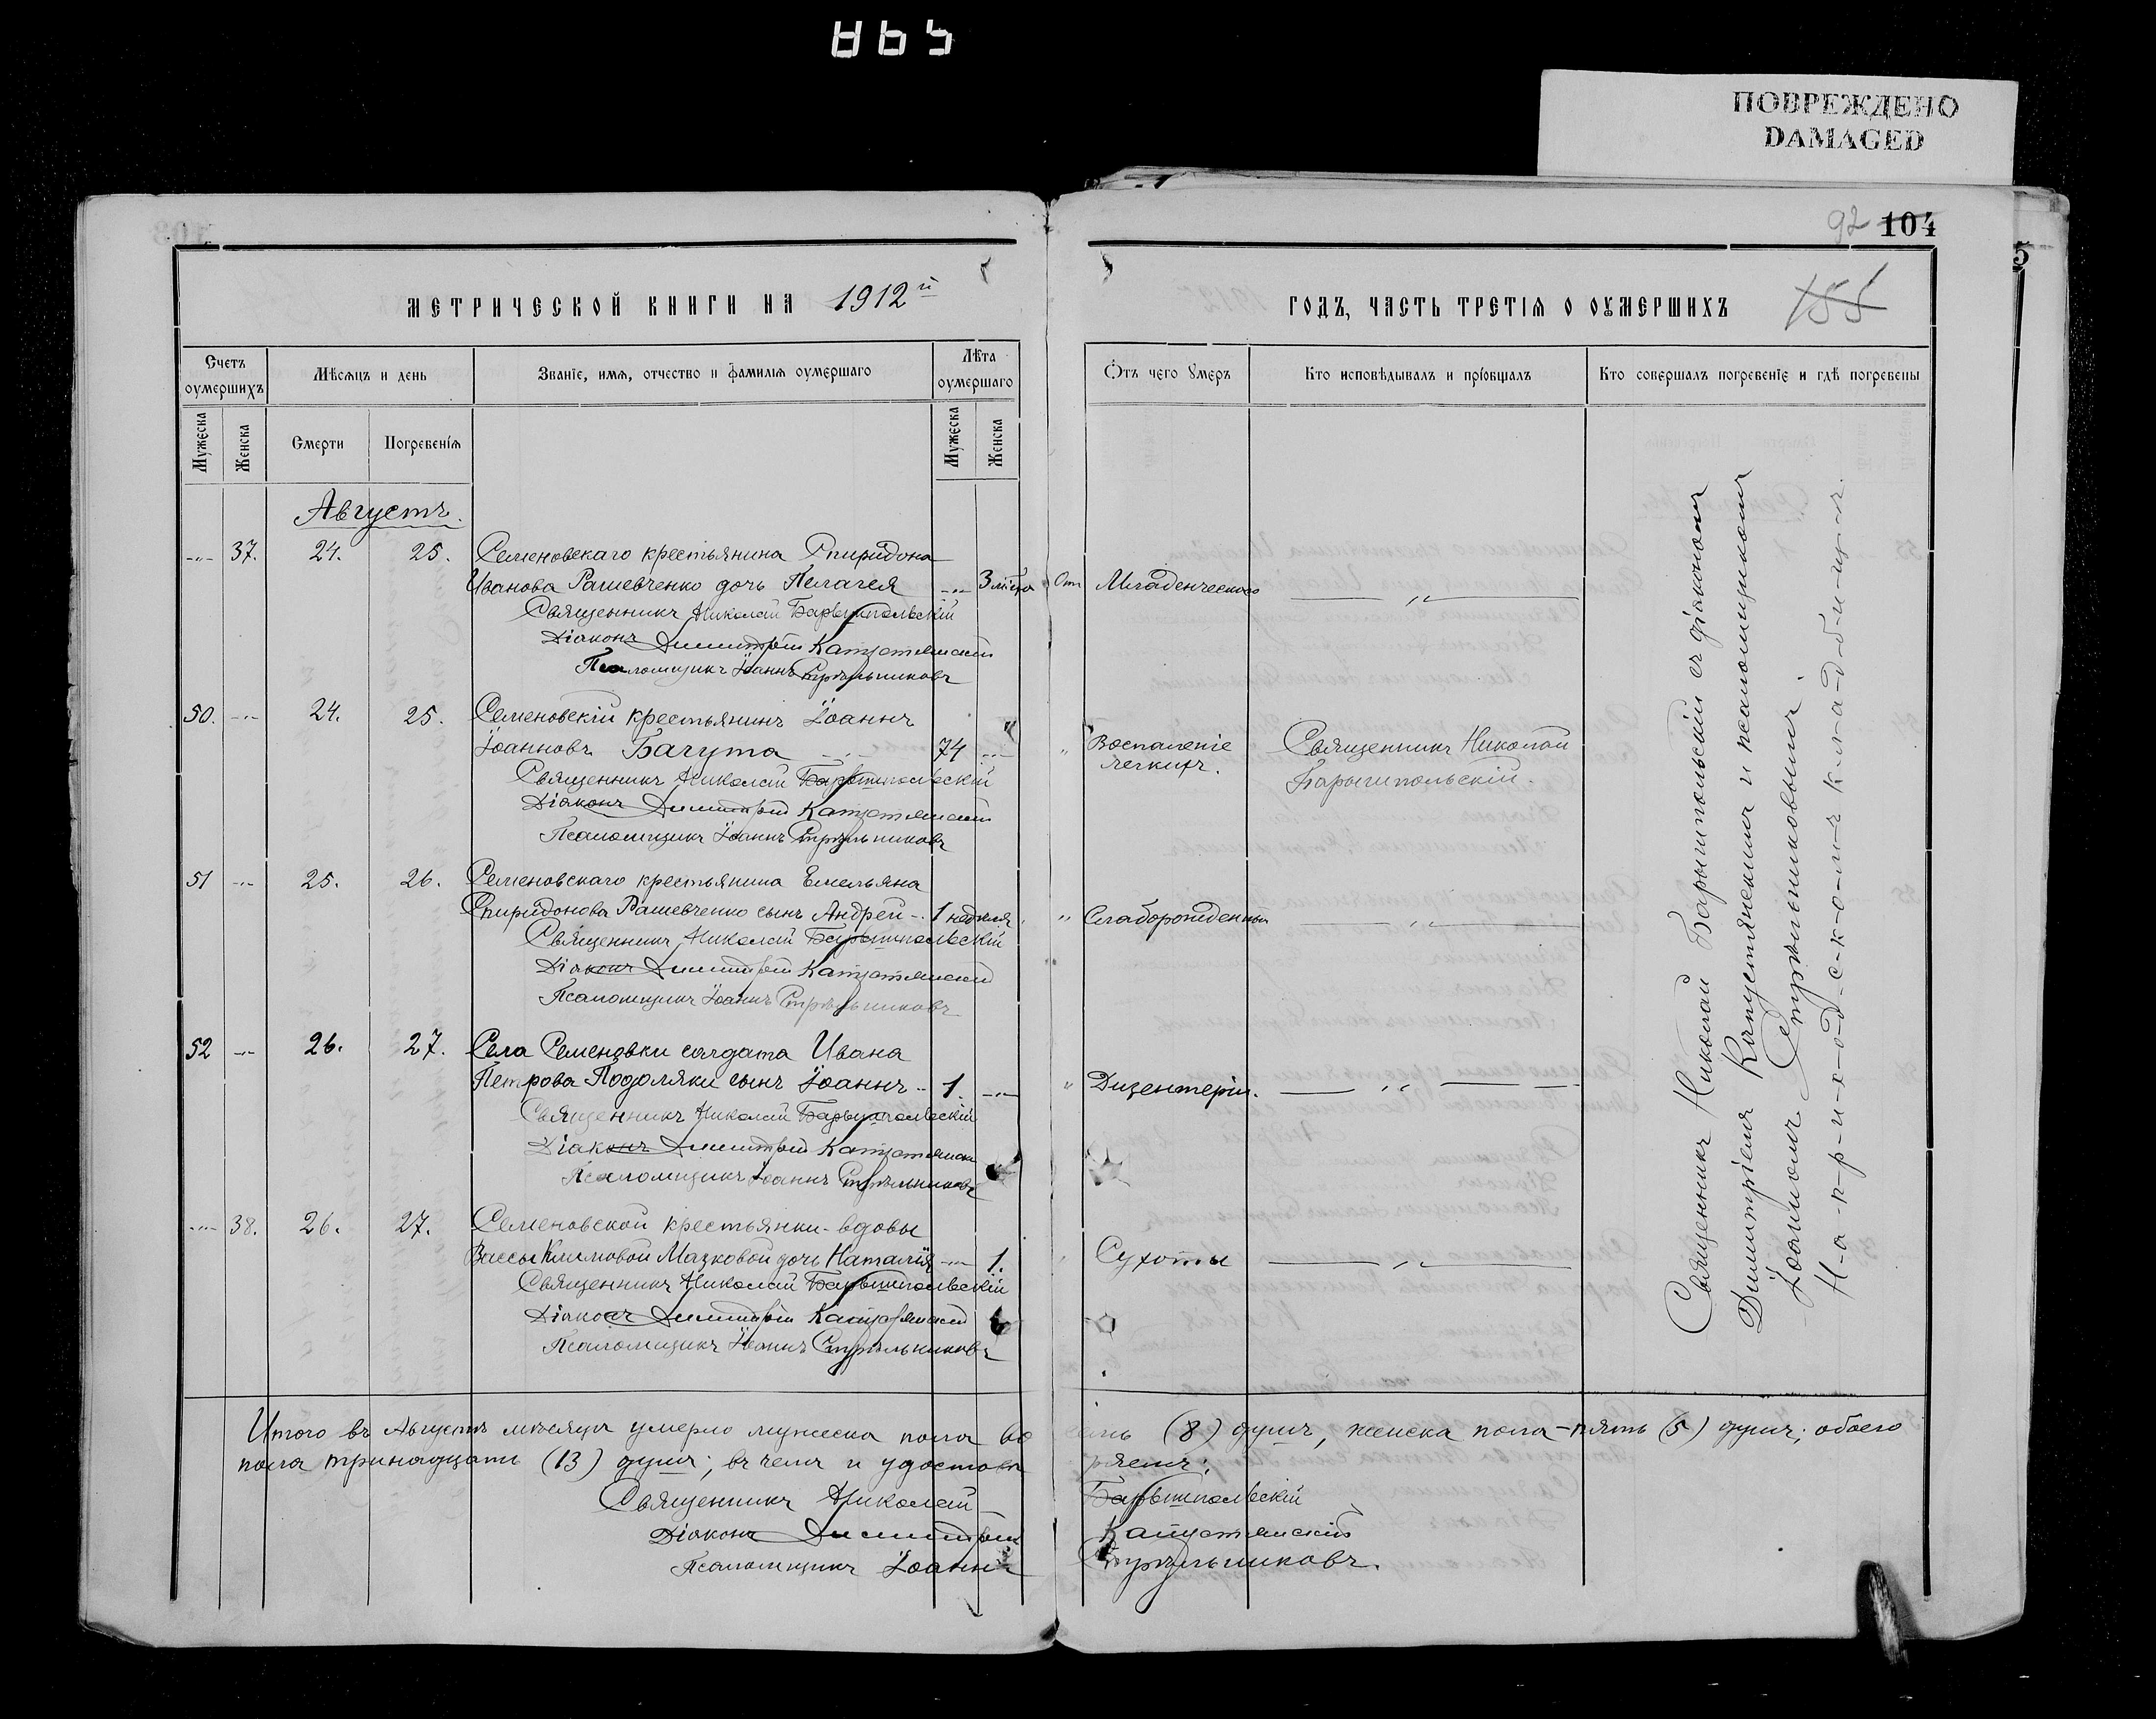 ПОВРЕЖДЕНО
DAMAGED
92 104
5
МЕТРИЧЕСКОЙ КНИГИ НА 1912й
Счетъ оумершихъ
Мѣсяцъ и день
Званіе, имя, отчество и фамилія оумершаго
Лѣта оумершаго
Мужеска
Женска
Смерти
Погребенія
Мужеска
Женска
Августъ.
37. 24. 25. Семеновскаго крестьянина Спиридона
Иванова Рашевченко дочь Пелагея
Священникъ Николай Барышпольскій
Діаконъ Димитрій Капустянскій
Псаломщикъ Іоаннъ Стрѣльниковъ
50. 24. 25. Семеновскій крестьянинъ Іоаннъ
Іоанновъ Багута 74
Священникъ Николай Барышпольскій
Діаконъ Димитрій Капустянскій
Псаломщикъ Іоаннъ Стрѣльниковъ
51 25. 26. Семеновскаго крестьянина Емельяна
Спиридонова Рашевченко сынъ Андрей 1 недѣля
Священникъ Николай Барышпольскій
Діаконъ Димитрій Капустянскій
Псаломщикъ Іоаннъ Стрѣльниковъ
52 26. 27. Села Семеновки солдата Ивана
Петрова Подоляки сынъ Іоаннъ 1.
Священникъ Николай Барышпольскій
Діаконъ Димитрій Капустянскій
Псаломщикъ Іоаннъ Стрѣльниковъ
38. 26. 27. Семеновской крестьянки-вдовы
Вассы Климовой Мазковой дочь Наталія 1.
Священникъ Николай Барышпольскій
Діаконъ Димитрій Капустянскій
Псаломщикъ Іоаннъ Стрѣльниковъ
ГОДЪ, ЧАСТЬ ТРЕТІЯ О ОУМЕРШИХЪ
155
Отъ чего умеръ
Кто исповѣдывалъ и пріобщалъ
Кто совершалъ погребеніе и гдѣ погребены
От Младенческаго
" Воспаленіе Священникъ Николай
легкихъ. Барышпольскій.
" Слаборожденный
" Дизентеріи.
Сухоты
Священникъ Николай Барышпольскій съ діакономъ
Димитріемъ Капустянскимъ и псаломщикомъ
Іоанномъ Стрѣльниковымъ.
Н-а п-р-и-х-о-д-с-к-о-м-ъ к-л-а-д-б-и-щ-ѣ.
Итого въ Августѣ мѣсяцѣ умерло мужеска пола (8) душъ, женска пола – пять (5) душъ; обоего
пола тринадцать (13) душъ; въ чемъ и удостовѣряемъ:
Священникъ Николай Барышпольскій
Діаконъ Димитрій Капустянскій
Псаломщикъ Іоаннъ Стрѣльниковъ.